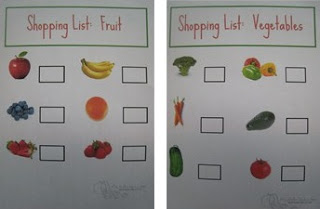 Shopping List: Fruit
Shopping List: Vegetables